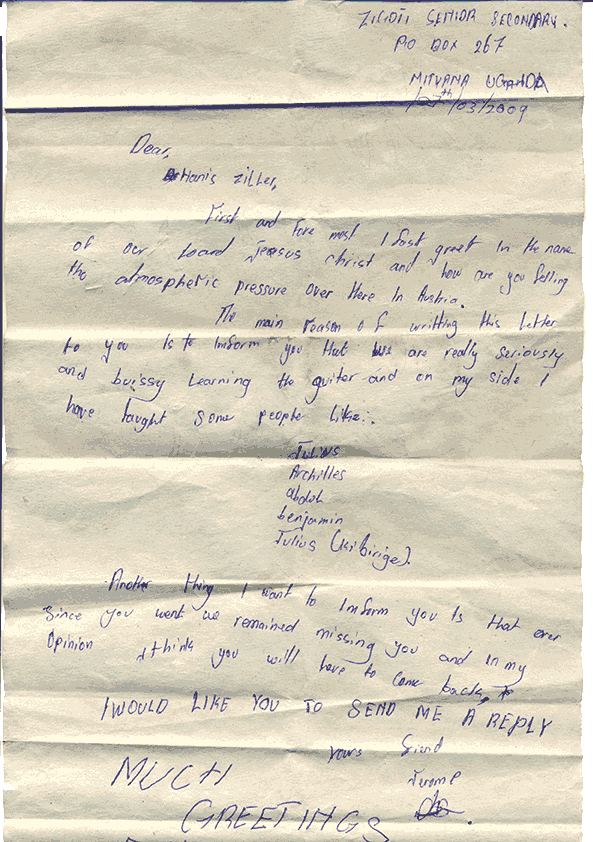 ZIGOTI SENIOR SECONDARY.
PO BOX 267
MITYANA UGANDA
/07th/03/2009
Dear,
Hanis Ziller,
First and fore most I fast greet in the name
of our Load Jeasus christ and how are you felling
the atmospheric pressure over there In Austria.
The main reason of writting this letter
to you Is to Imform you that we are really seriously
and buissy learning the guiter and on my side I
have taught some people like:.
Julius
Archilles
abdul
benjamin
Julius (Kibirige).
Another thing I want to Imform you Is that ever
Since you went we remained missing you and in my
Opinion I think you will have to come back,
I WOULD LIKE YOU TO SEND ME A REPLY
yours friend
Jerome
MUCH
GREETINGS